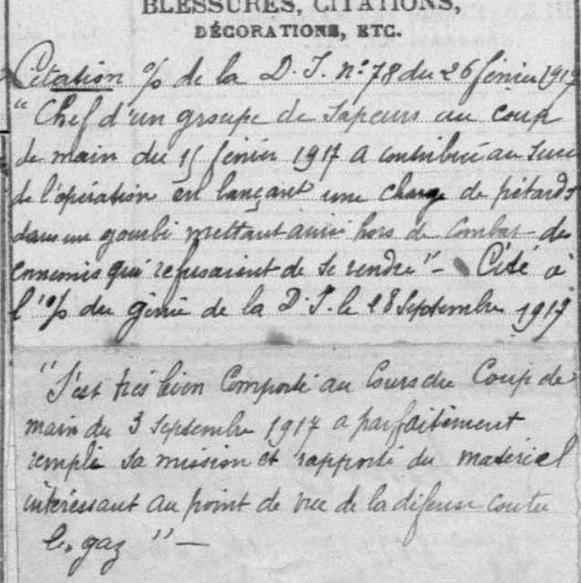 BLESSURES, CITATIONS,
DÉCORATIONS, ETC.
Citation o/ de la D. I. n° 78 du 26 février 1917
"Chef d'un groupe de sapeurs au coup
de main du 15 février 1917 a contribué au succès
de l'opération en lançant une charge de pétards
dans un gourbi mettant ainsi hors de combat des
ennemis qui refusaient de se rendre" - Cité à
l'o/ du génie de la D. I. le 28 Septembre 1917
"S'est très bien comporté au cours du coup de
main du 3 Septembre 1917 a parfaitement
rempli sa mission et rapporté du matériel
intéressant au point de vue de la défense contre
les gaz" -